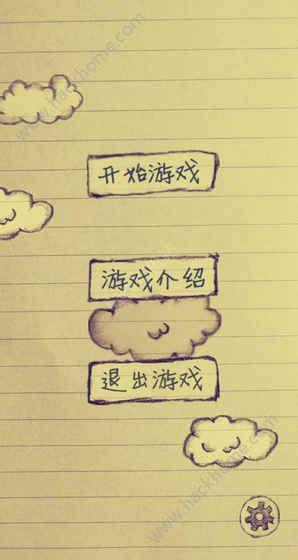 www.hackhome.com
开始游戏
游戏介绍
退出游戏
www.hackhome.com